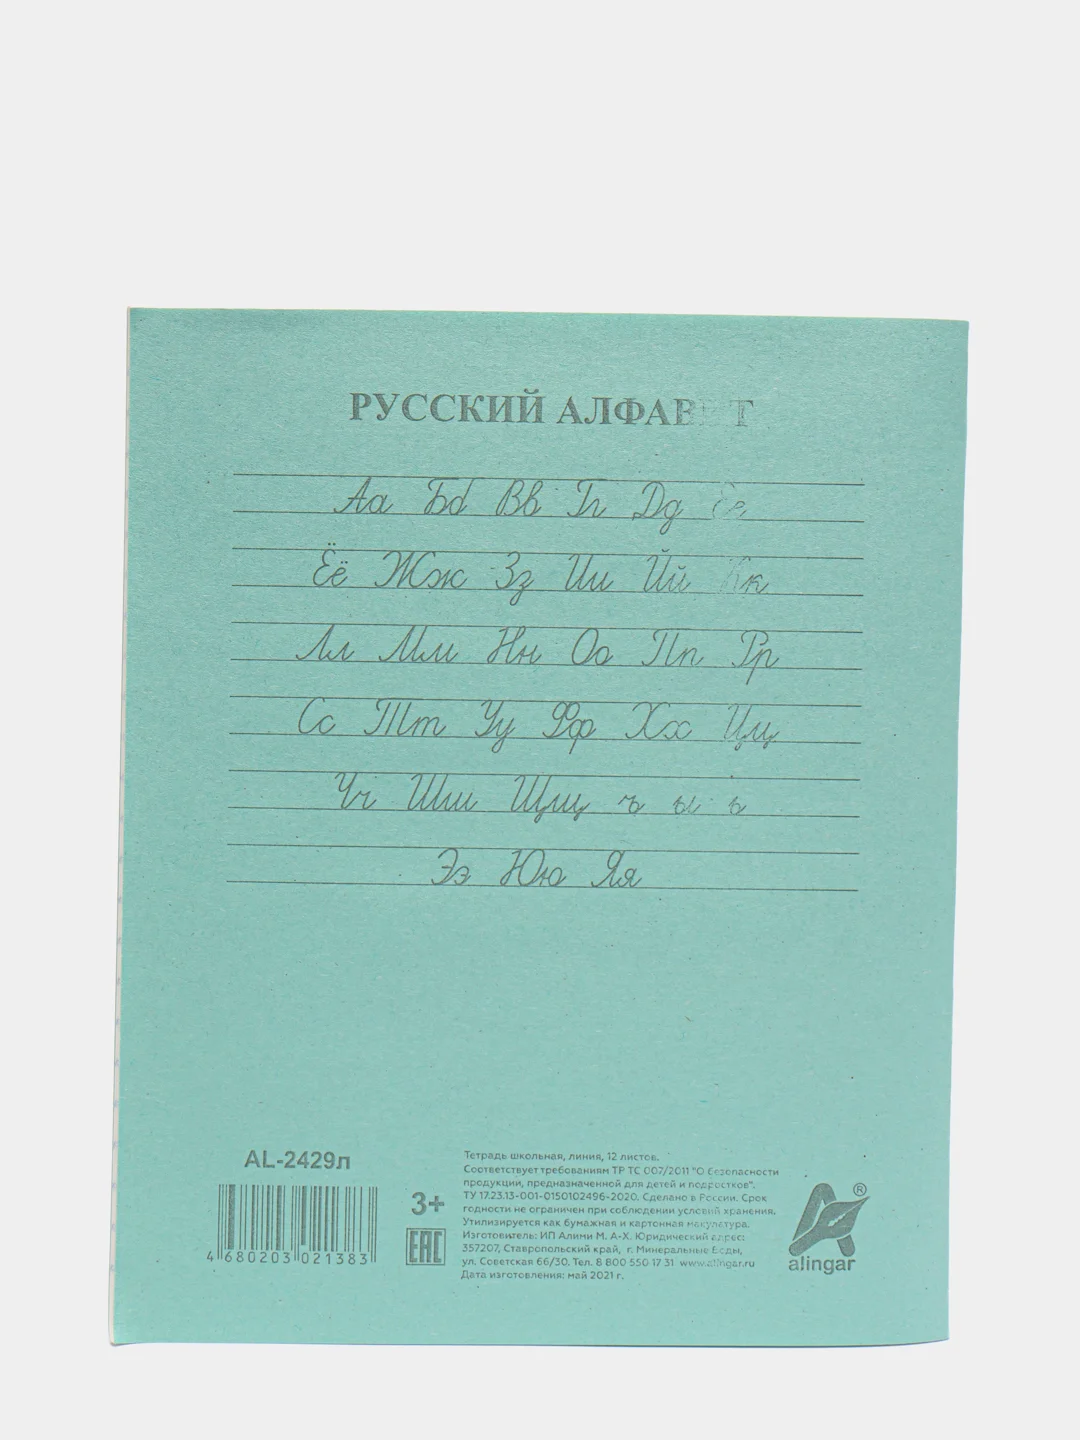 РУССКИЙ АЛФАВЕТ
Аа Бб Вв Гг Дд Ее
Ёё Жж Зз Ии Йй Кк
Лл Мм Нн Оо Пп Рр
Сс Тт Уу Фф Хх Цц
Чч Шш Щщ ъ ы ь
Ээ Юю Яя
AL-2429л
4 680203 021383
3+
EAC
Тетрадь школьная, линия, 12 листов.
Соответствует требованиям ТР ТС 007/2011 "О безопасности
продукции, предназначенной для детей и подростков".
ТУ 17.23.13-001-0150102496-2020. Сделано в России. Срок
годности не ограничен при соблюдении условий хранения.
Утилизируется как бумажная и картонная макулатура.
Изготовитель: ИП Алими М. А-Х. Юридический адрес:
357207, Ставропольский край, г. Минеральные Воды,
ул. Советская 66/30. Тел. 8 800 550 17 31 www.alingar.ru
Дата изготовления: май 2021 г.
®
alingar